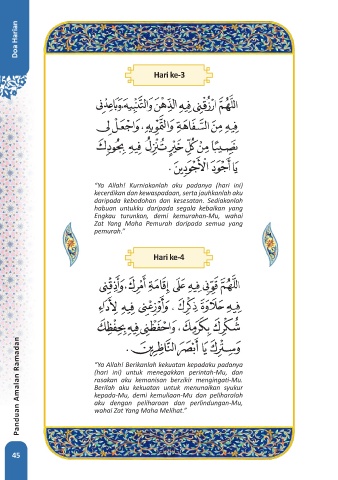 Doa Harian
Hari ke-3
اَللَّهُمَّ ارْزُقْنِي فِيهِ الذِّهْنَ وَالتَّنْبِيهَ، وَبَاعِدْنِي
فِيهِ مِنَ السَّفَاهَةِ وَالتَّمْوِيهِ، وَاجْعَلْ لِي
نَصِيبًا مِنْ كُلِّ خَيْرٍ تُنْزِلُ فِيهِ، بِجُودِكَ
يَا أَجْوَدَ الْأَجْوَدِينَ.
"Ya Allah! Kurniakanlah aku padanya (hari ini)
kecerdikan dan kewaspadaan, serta jauhkanlah aku
daripada kebodohan dan kesesatan. Sediakanlah
habuan untukku daripada segala kebaikan yang
Engkau turunkan, demi kemurahan-Mu, wahai
Zat Yang Maha Pemurah daripada semua yang
pemurah."
Hari ke-4
اَللَّهُمَّ قَوِّنِي فِيهِ عَلَى إِقَامَةِ أَمْرِكَ، وَأَذِقْنِي
فِيهِ حَلَاوَةَ ذِكْرِكَ. وَأَوْزِعْنِي فِيهِ لِأَدَاءِ
شُكْرِكَ بِكَرَمِكَ، وَاحْفَظْنِي فِيهِ بِحِفْظِكَ
وَسِتْرِكَ يَا أَبْصَرَ النَّاظِرِينَ.
"Ya Allah! Berikanlah kekuatan kepadaku padanya
(hari ini) untuk menegakkan perintah-Mu, dan
rasakan aku kemanisan berzikir mengingati-Mu.
Berilah aku kekuatan untuk menunaikan syukur
kepada-Mu, demi kemuliaan-Mu dan peliharalah
aku dengan peliharaan dan perlindungan-Mu,
wahai Zat Yang Maha Melihat."
Panduan Amalan Ramadan
45